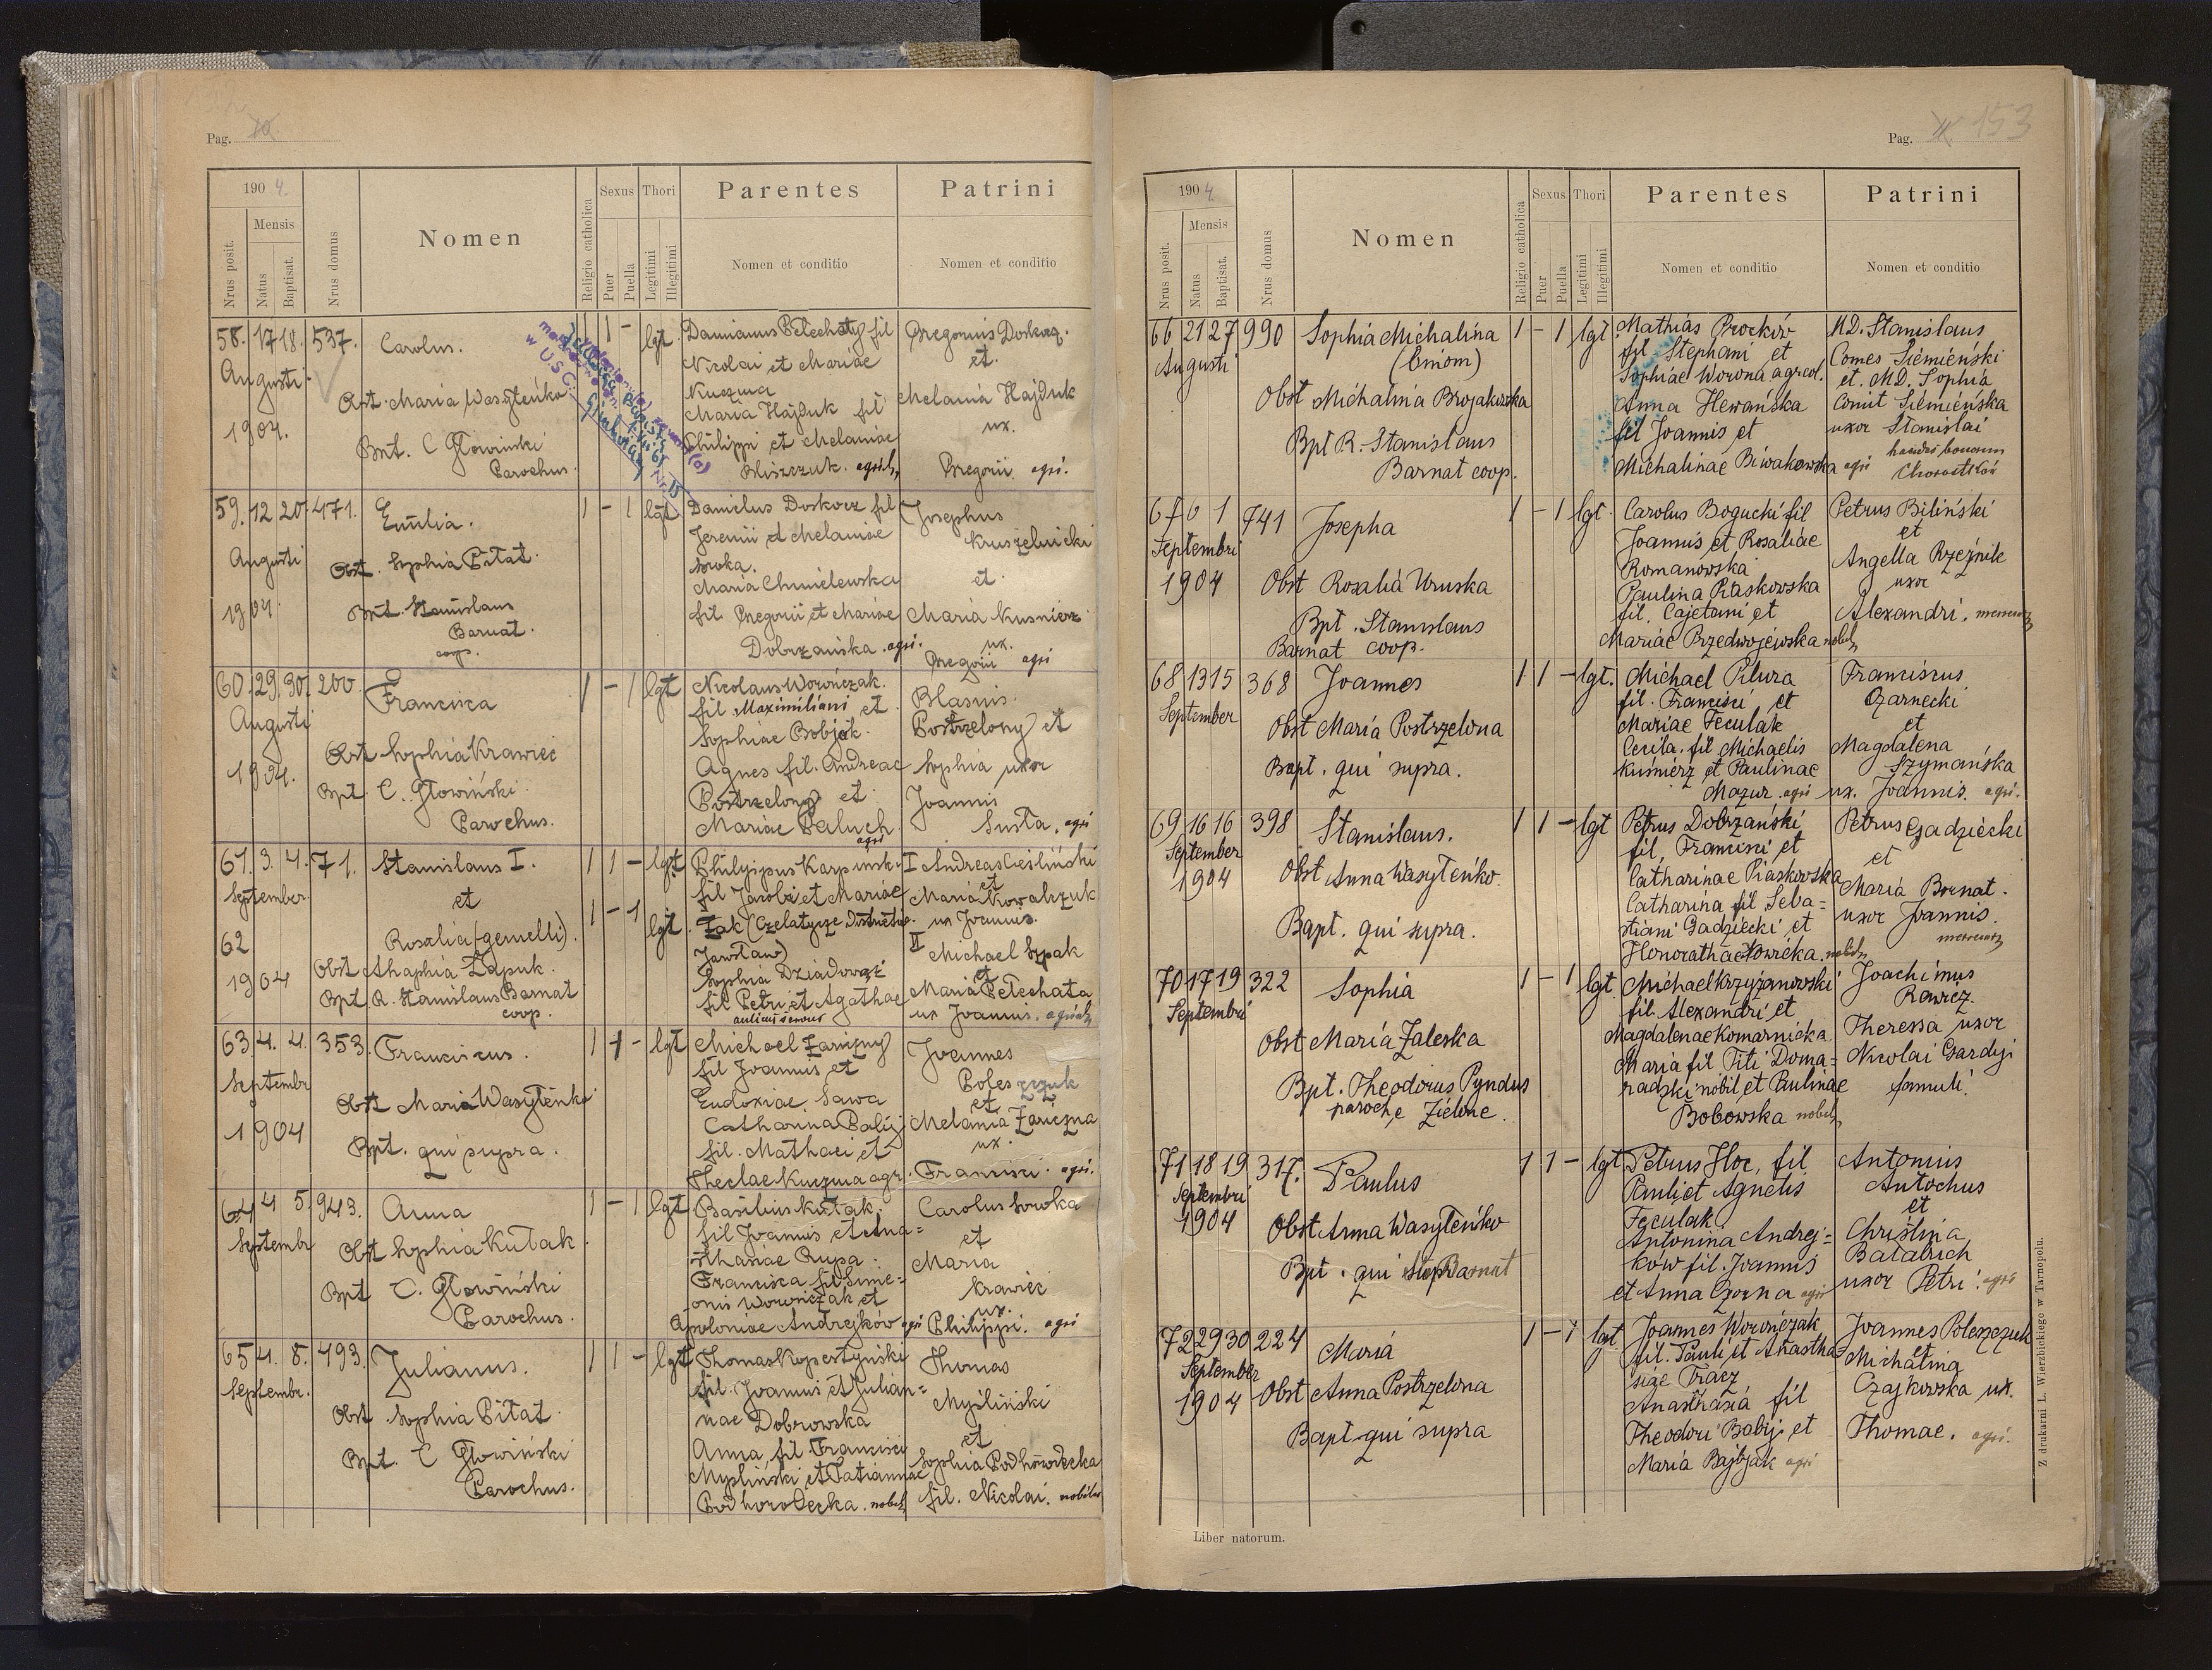 Pag.
190 4.
Nrus posit.
Mensis
Natus
Baptisat.
Nrus domus
Nomen
Religio catholica
Sexus
Puer
Puella
Thori
Legitimi
Illegitimi
Parentes
Nomen et conditio
Patrini
Nomen et conditio
58. 17 18. 537.
Augusti
1904.
Carolus.
Obst. Maria Wasyleńko
Bpt. C Głowinski
Parochus.
1 - lgt.
w U S C
Damianus Pelechaty fil
Nicolai et Mariae
Kuczma
Maria Hajduk fil
Philippi et Melaniae
agric.
Gregorius Doskocz.
et.
Melania Hajduk
ux.
Gregorii agri.
59. 12 20. 471.
Augusti
1904.
Emilia.
Obst. Sophia Pitat.
Bpt. Stanislaus
Barnat.
coop.
1 - 1 lgt.
Danielus Doskocz fil
Jeremii et Melaniae
Sowka.
Maria Chmielewska
fil. Gregorii et Mariae
Dobrzańska. agri.
Josephus
Kruszelnicki
et
Maria Kusnierz
ux.
Gregorii agri
60. 29. 30. 200.
Augusti
1904.
Francisca
Obst Sophia Krawiec
Bpt. C. Głowiński.
Parochus.
1 - 1 lgt
Nicolaus Worończak.
fil. Maximiliani et
Sophiae Bobjak.
Agnes fil. Andreae
Postrzelony et
Mariae Paluch.
agri
Blasius
Postrzelony et
Sophia uxor
Joannis
Susta. agri
61. 3. 4. 71.
September.
62
1904
Stanislaus I.
et
Rosalia (gemelli).
Obst Ahaphia Łapuk.
Bpt. R. Stanislaus Barnat
coop.
1 1 - lgt.
1 - 1 lgt.
Philyipus Karpinski
fil Jacobi et Mariae
Żak (Czelatyce districtus
Jarosław)
Sophia
fil Petri et Agathae
I Andreas Cieśliński
et
Maria Kowalczuk
ux Joannis.
II
Michael Szpak
et
Maria Pelechata
ux Joannis.
63 4. 4. 353.
Septembr
1904
Franciscus.
Obst Maria Wasyleńko
Bpt. qui supra.
1 1 - lgt
Michael Zariczny
fil Joannis et
Eudoxiae Sawa
Catharina Palij
fil. Mathaei et
Theclae Kuczma agr.
Joannes
Poleszczuk
et
Melania Zariczna
ux.
Francisci. agri.
64 4 5. 943.
Septembr
Anna
Obst Sophia Kutak
Bpt C. Głowiński
Parochus.
1 - 1 lgt
Basilius Kutak
fil Joannis et Ana=
sthasiae Rupa.
Francisca fil Sime=
onis Worończak et
Apoloniae Andrejków agri
Carolus Sowka
et
Maria
Krawiec
ux.
Philippi. agri
65 4. 8. 493.
Septembr.
Julianus.
Obst Sophia Pitat
Bpt. C Głowiński
Parochus.
1 1 - lgt
Thomas Kopestyński
fil. Joannis et Julian=
nae Dobrowska
Anna, fil. Francisci
Mysliński et Tatiannae
Podhorodecka. nobil.
Thomas
Myśliński
et
Sophia Podhorodecka
fil. Nicolai. nobiles
Pag. 153
190 4.
Nrus posit.
Mensis
Natus
Baptisat.
Nrus domus
Nomen
Religio catholica
Sexus
Puer
Puella
Thori
Legitimi
Illegitimi
Parentes
Nomen et conditio
Patrini
Nomen et conditio
66 21 27 990
Augusti
Sophia Michalina
Obst Michalina Brojakowska
Bpt R. Stanislaus
Barnat coop.
1 - 1 lgt
Mathias Prockiw
fil. Stephani et
Sophiae Worona agricol.
Anna Hewańska
fil Joannis et
Michalinae Biwakowska agri
MD. Stanislaus
Comes Siemieński
et. MD. Sophia
Comit Siemieńska
uxor Stanislai
haeres bonorum
Chorostków
67 6 1 741
Septembri
1904
Josepha
Obst Rosalia Uruska
Bpt. Stanislaus
Barnat coop.
1 - 1 lgt.
Carolus Bogucki fil
Joannis et Rosaliae
Romanowska
Paulina Piaskowska
fil. Cajetani et
Mariae Przedwojewska nobil.
Petrus Biliński
et
Angella Rzeźnik
uxor
Alexandri.
68 13 15 368
September
Joannes
Obst Maria Postrzelona
Bapt. qui supra.
1 1 - lgt.
Michael Pilura
fil. Francisci et
Mariae Feculak
Cecila. fil Michaelis
Kuśnierz et Paulinae
Mazur. agri
Franciscus
Czarnecki
et
Magdalena
Szymańska
ux. Joannis. agri.
69 16 16 398
September
1904
Stanislaus.
Obst Anna Wasyleńko.
Bapt. qui supra.
1 1 - lgt
Petrus Dobrzański
fil. Francisci et
Catharinae Piaskowska
Catharina fil Seba=
stiani Gadziecki et
Honorathae Łowicka. nobil.
Petrus Gadziecki
et
Maria Bornat.
uxor Joannis.
70 17 19 322
Septembri
Sophia
Obst Maria Zaleska
Bpt. Theodorus Pyndus
paroch. e Zielone.
1 - 1 lgt.
Michael Krzyżanowski
fil Alexandri et
Magdalenae Komarnicka
Maria fil Titi Doma=
radzki nobil et Paulinae
Bobowska nobil.
Joachimus
Rawicz.
Theressa uxor
Nicolai Gardyj
famuli.
71 18 19 317.
Septembri
1904
Paulus
Obst Anna Wasyleńko
Bpt. qui sup Barnat
1 1 - lgt
Petrus Hoc, fil
Pauli et Agnetis
Feculak
Antonina Andrej=
ków fil. Joannis
et Anna Czorna agri
Antonius
Antochus
et
Christina
Batalrich
uxor Petri. agri
72 29 30 224
September
1904
Maria
Obst Anna Postrzelona
Bapt. qui supra
1 - 1 lgt
Joannes Worończak
fil. Pauli et Anastha=
siae Tracz
Anasthasia fil
Theodori Babij et
Maria Bajbjak agri
Joannes Poleszczuk
et
Michalina
Czajkowska ux.
Thomae. agri.
Liber natorum.
Z drukarni L. Wierzbickiego w Tarnopolu.